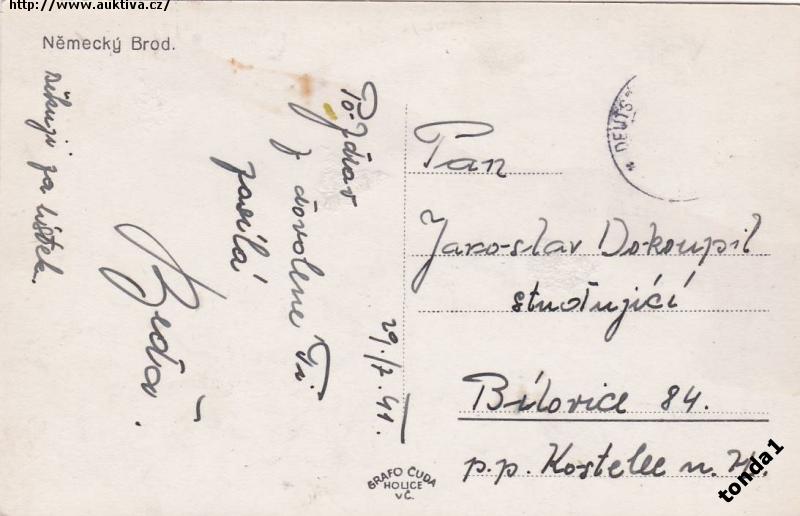 http://www.auktiva.cz/
Německý Brod.
29./7. 41.
Pozdrav
z dovolené Ti
zasílá
Zeďa.
Děkuji za lístek.
" DEUTSC
Pan
Jaroslav Dokoupil
studující
Bílovice 84.
p.p. Kostelec n. H.
GRAFO ČUDA
HOLICE
V Č.
tonda1